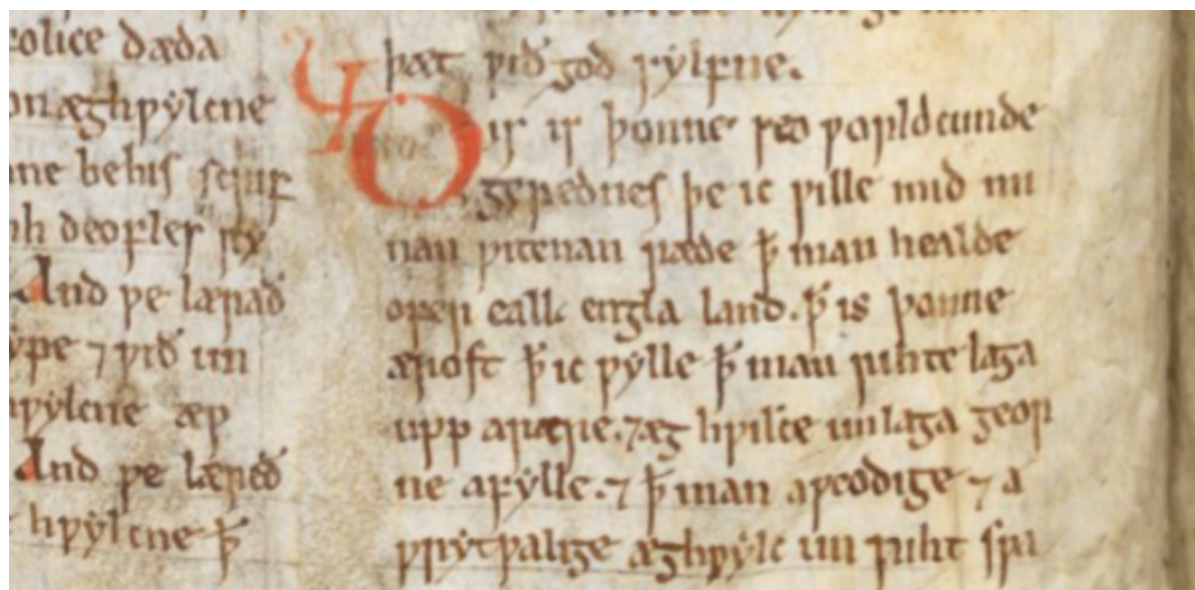 olice dæda
on æghƿylcne
ne behis scrift
h deofles sy
And ƿe lærað
ype ⁊ ƿið un
ƿylcne æƿ
And ƿe læreð
hƿylcne ꝥ
þæt ƿið god sylfne.
Ðis is þonne seo ƿorldcunde
gerednes þe ic ƿille mid mi
nan ƿitenan ræde ꝥ man healde
ofer eall engla land. ꝥ is þonne
ærost ꝥ ic ƿylle ꝥ man rihte laga
upp arære. ⁊æg hƿilce unlaga geor
ne afylle. ⁊ ꝥ man aƿeodige ⁊ a
ƿyrtƿalige æghƿylc un riht sƿa